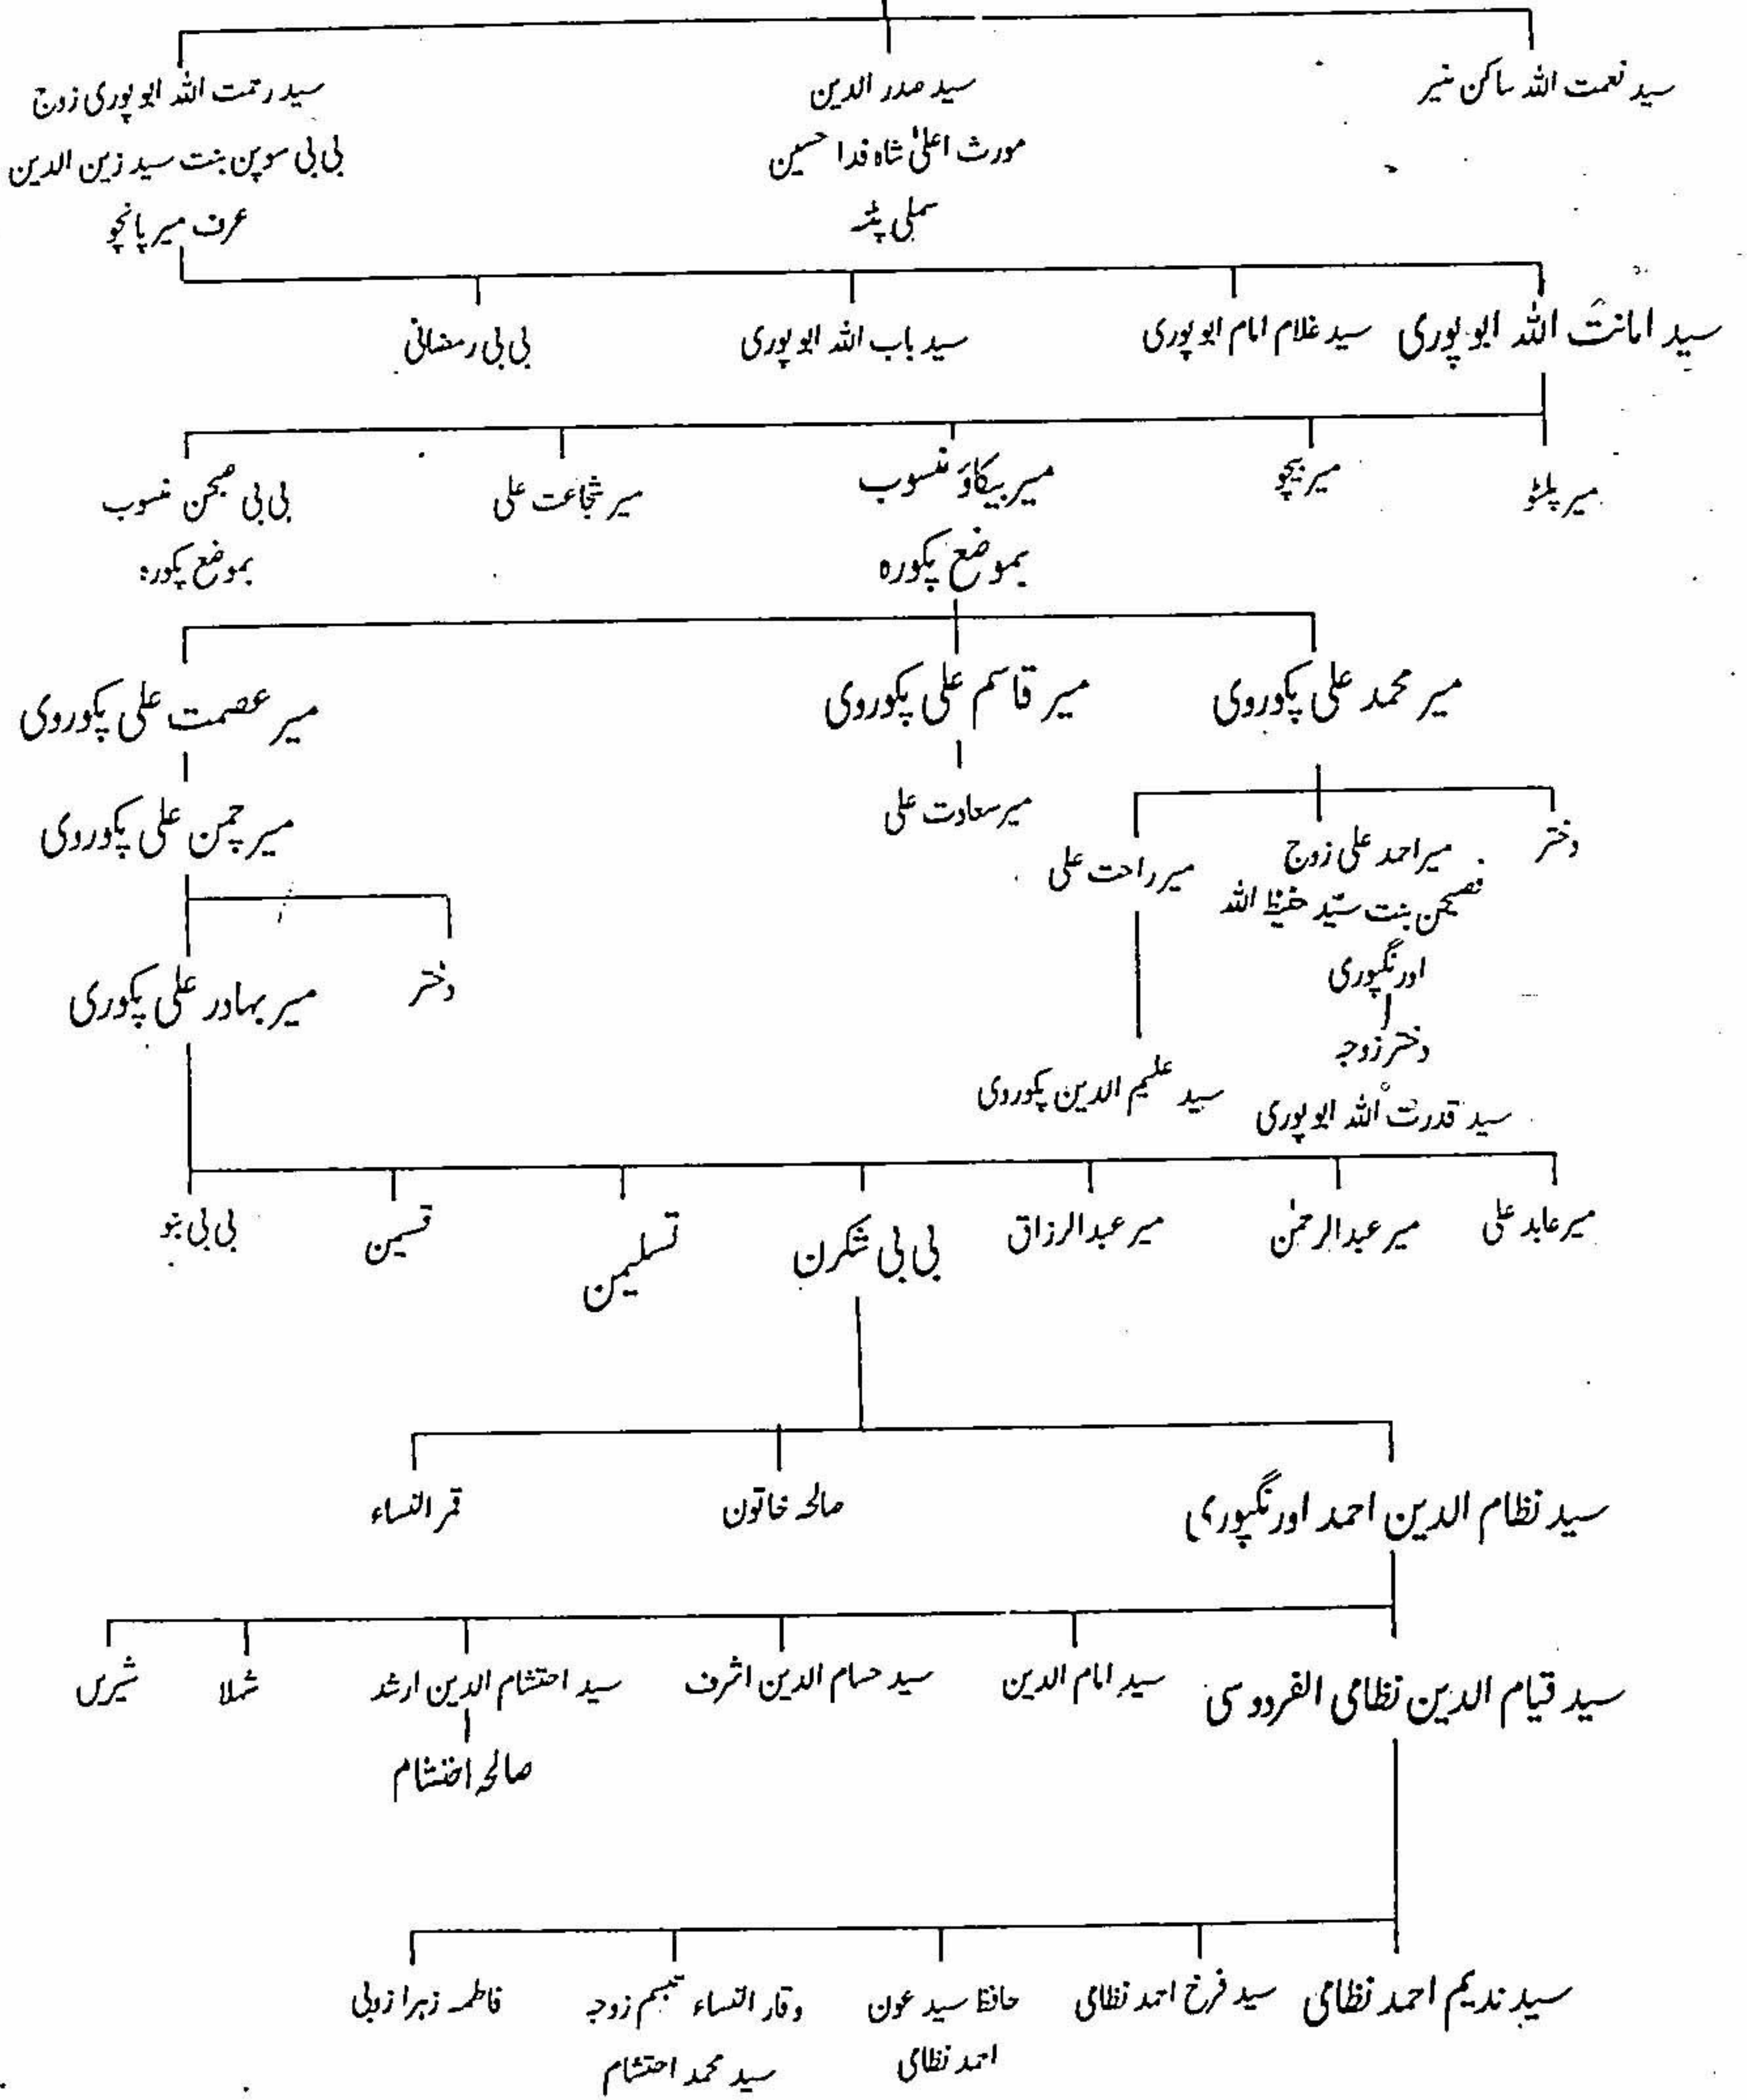 سید نعمت اللہ ساکن منیر
سید صدر الدین
مورث اعلیٰ شاہ فدا حسین
سملی پٹنہ
سید رحمت اللہ ابو پوری زوج
بی بی سوپن بنت سید زین الدین
عرف میر پانچو
سید امانت اللہ ابو پوری
سید غلام امام ابو پوری
سید باب اللہ ابو پوری
بی بی رمضانی
میر پلٹو
میر بیچو
میر بیکاؤ منسوب
بموضع پکورہ
میر شجاعت علی
بی بی صبحن منسوب
بموضع پکورہ
میر محمد علی پکوروی
میر قاسم علی پکوروی
میر عصمت علی پکوروی
دختر
میر احمد علی زوج
نصیحن بنت سیّد حفیظ اللہ
اورنگپوری
دختر زوجہ
سید قدرت اللہ ابو پوری
میر راحت علی
سید علیم الدین پکوروی
میر سعادت علی
میر چمن علی پکوروی
دختر
میر بہادر علی پکوری
میر عابد علی
میر عبدالرحمٰن
میر عبدالرزاق
بی بی شکرن
تسلیمن
قسیمن
بی بی بنو
سید نظام الدین احمد اورنگپوری
صالحہ خاتون
قمر النساء
سید قیام الدین نظامی الفردوسی
سید امام الدین
سید حسام الدین اشرف
سید احتشام الدین ارشد
شہلا
شیریں
صالحہ احتشام
سید ندیم احمد نظامی
سید فرخ احمد نظامی
حافظ سید عون
احمد نظامی
وقار النساء تبسم زوجہ
سید محمد احتشام
فاطمہ زہرا زوبی